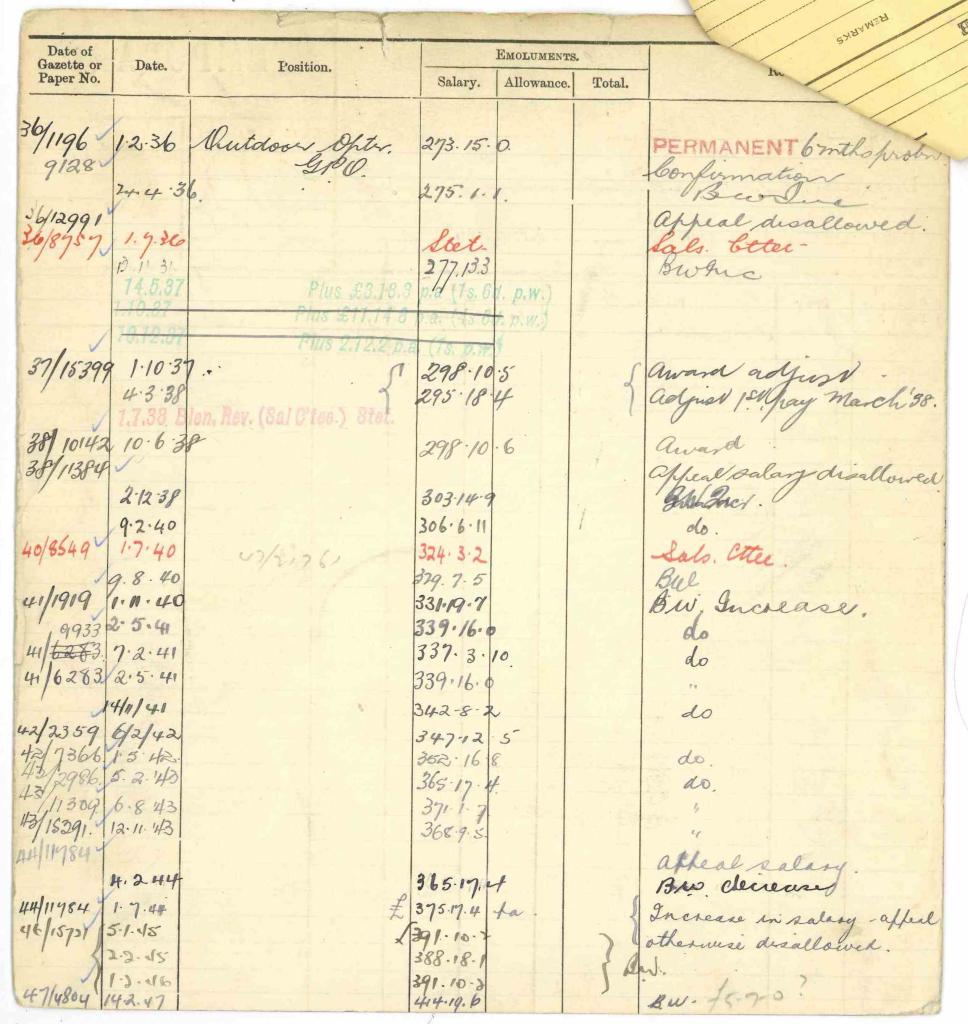 REMARKS
Date of Gazette or Paper No. Date. Position. EMOLUMENTS.
Salary. Allowance. Total.
36/1196 1.2.36 Outdoor Opter. 273.15.0 PERMANENT 6 mths probn
9128 G.P.O. Confirmation
24.4.36. 275.1.1.
36/12991 Appeal disallowed.
36/8757 1.7.36 Stet. Sals. Cttee
277.13.3 BW Inc
14.5.37 Plus £3.18.3 p.a (1s. 6d. p.w.)
1.10.37 Plus £11.14.8 p.a. (4s 6d. p.w.)
10.12.37 Plus 2.12.2 p.a (1s. p.w.)
37/15399 1.10.37 298.10.5 Award adjust
4.3.38 295.18.4 Adjust 1st pay March '38.
1.7.38 Bien. Rev. (Sal C'tee.) Stet.
38/10142 10.6.38 298.10.6 Award
38/11384 Appeal salary disallowed
2.12.38 303.14.9
9.2.40 306.6.11 do.
40/8549 1.7.40 324.3.2 Sals. Cttee.
9.8.40 329.7.5
41/1919 1.11.40 331.19.7 B.W. Increase.
9933 2.5.41 339.16.0 do
41/6283 7.2.41 337.3.10 do
41/6283 2.5.41 339.16.0 "
14/11/41 342.8.2 do
42/2359 6/2/42 347.12.5
42/7366 1.5.42 352.16.8 do.
43/2986 5.2.43 365.17.4 do.
43/11309 6.8.43 371.1.7 "
43/15291. 12.11.43 368.9.5 "
44/11784 Appeal salary.
4.2.44 365.17.4 B.W. decrease
44/11784 1.7.44 £ 375.17.4 pa. Increase in salary - appeal
5.1.45 391.10.2 otherwise disallowed.
2.2.45 388.18.1
1.2.46 391.10.2 B.W.
47/4804 14.2.47 414.19.6 B.W.